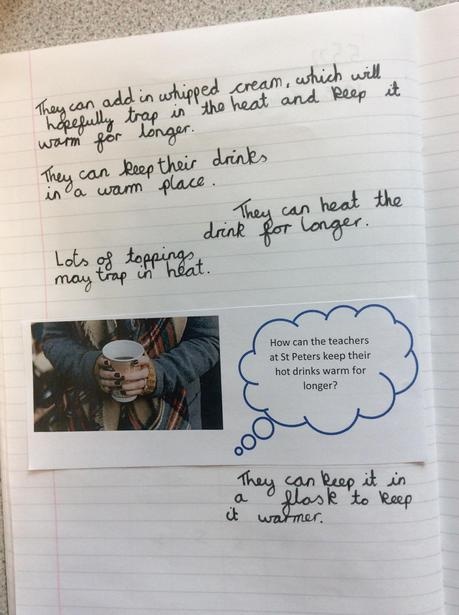 They can add in whipped cream, which will
hopefully trap in the heat and keep it
warm for longer.
They can keep their drinks
in a warm place.
They can heat the
drink for longer.
Lots of toppings
may trap in heat.
How can the teachers
at St Peters keep their
hot drinks warm for
longer?
They can keep it in
a flask to keep
it warmer.